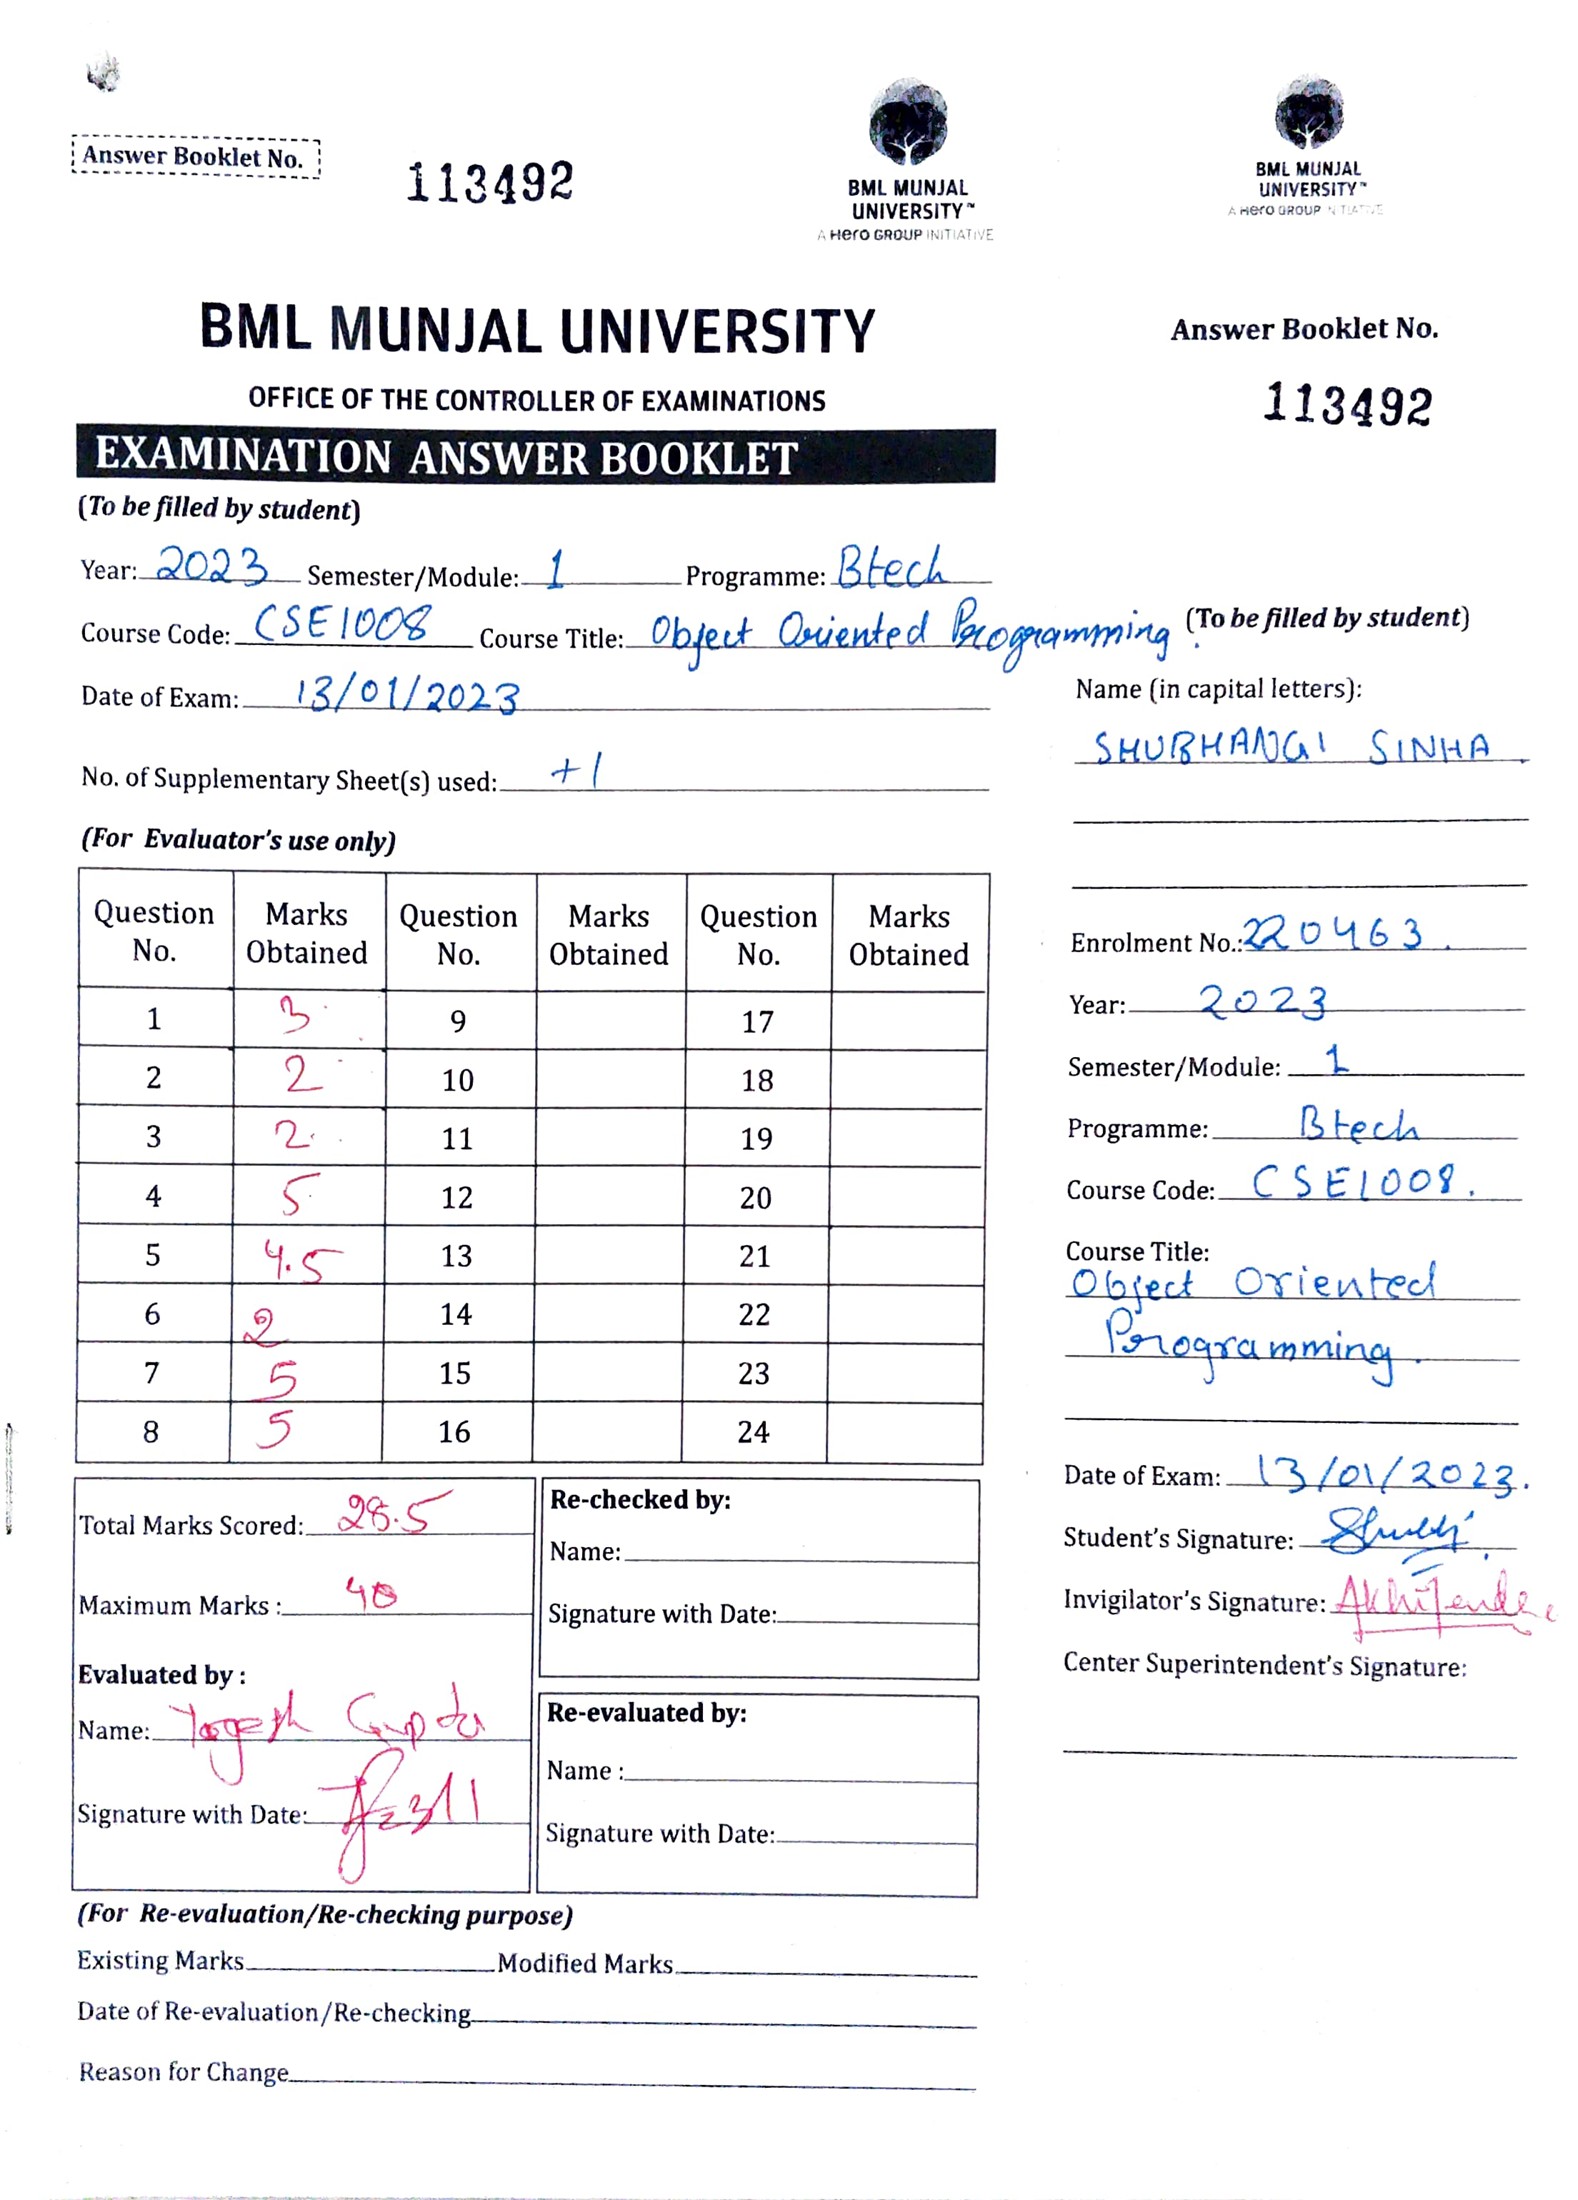 Answer Booklet No.
113492
BML MUNJAL
UNIVERSITY™
A Hero GROUP INITIATIVE
BML MUNJAL
UNIVERSITY™
A Hero GROUP INITIATIVE
BML MUNJAL UNIVERSITY
OFFICE OF THE CONTROLLER OF EXAMINATIONS
EXAMINATION ANSWER BOOKLET
(To be filled by student)
Year: 2023 Semester/Module: 1 Programme: Btech
Course Code: CSE1008 Course Title: Object Oriented Programming.
Date of Exam: 13/01/2023
No. of Supplementary Sheet(s) used: +1
(For Evaluator's use only)
Question No. Marks Obtained Question No. Marks Obtained Question No. Marks Obtained
1 3 9 17
2 2 10 18
3 2 11 19
4 5 12 20
5 4.5 13 21
6 2 14 22
7 5 15 23
8 5 16 24
Total Marks Scored: 28.5
Maximum Marks : 40
Evaluated by :
Name: Yogesh Gupta
Signature with Date:
Re-checked by:
Name:
Signature with Date:
Re-evaluated by:
Name :
Signature with Date:
(For Re-evaluation/Re-checking purpose)
Existing Marks Modified Marks
Date of Re-evaluation/Re-checking
Reason for Change
Answer Booklet No.
113492
(To be filled by student)
Name (in capital letters):
SHUBHANGI SINHA.
Enrolment No.: 220463.
Year: 2023
Semester/Module: 1
Programme: Btech
Course Code: CSE1008.
Course Title:
Object Oriented
Programming.
Date of Exam: 13/01/2023.
Student's Signature:
Invigilator's Signature:
Center Superintendent's Signature: